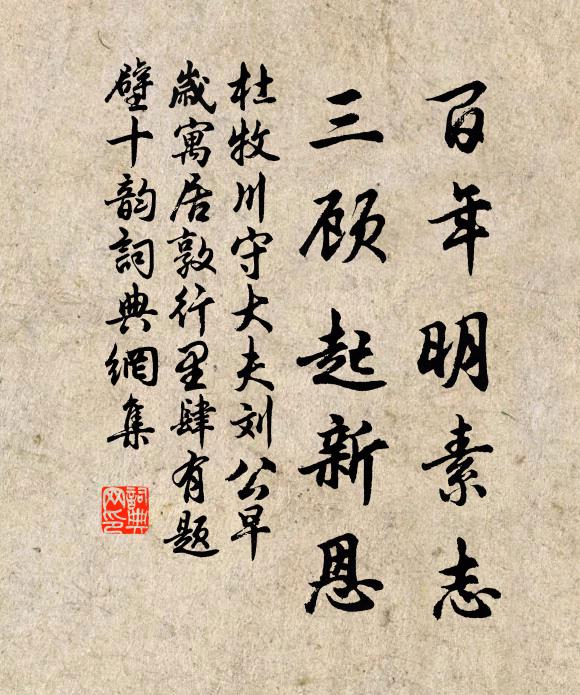 百年明素志
三顾起新恩
杜牧川守大夫刘公早
歲寓居敦行里肆有题
壁十韵詞典網集
詞典网印